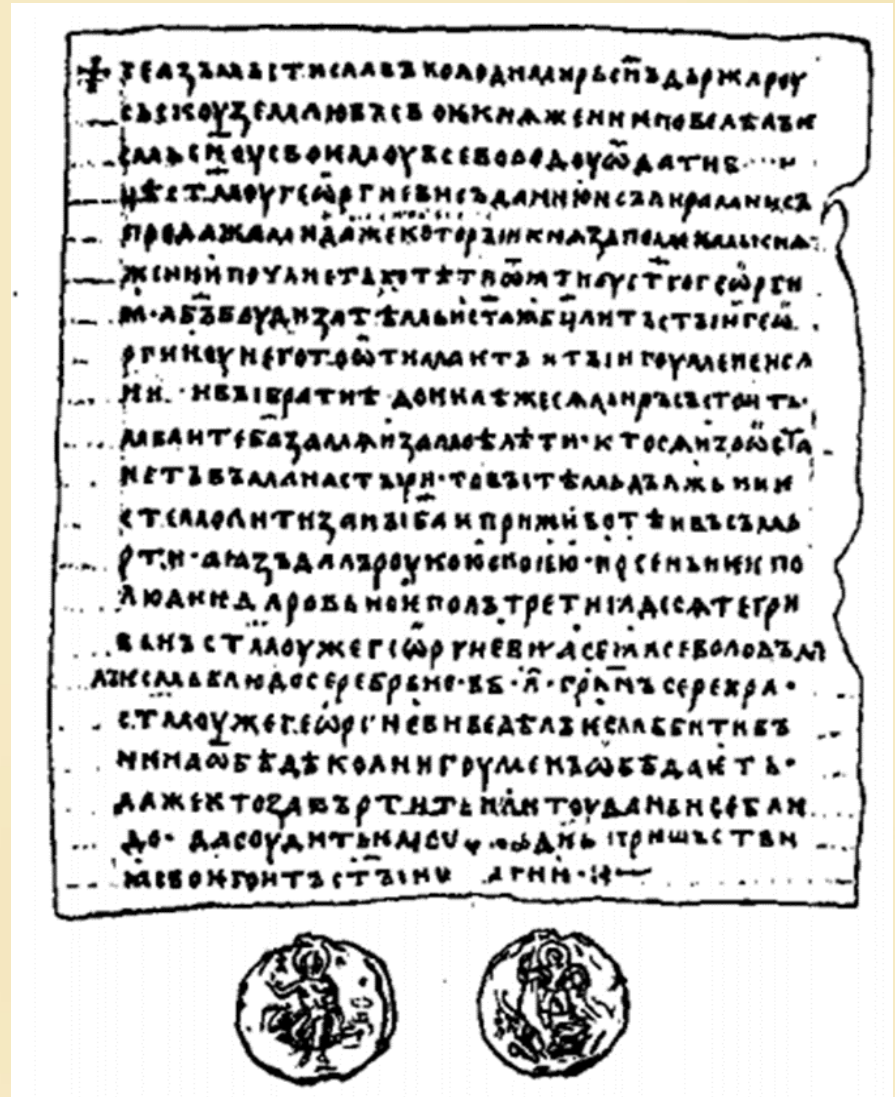 + се азъ мьстиславъ володимирь с҃нъ дьржа роу
сьскоу землю въ своѥ кнѧжениѥ повелѣлъ ѥ
смь с҃ноу своѥмоу всеволодоу ѿдати б
цѣ с҃тмоу геѡргиеви съ данию и съ вирами и съ
продажами даже которыи кнѧзь по моѥмь кнѧ
жении хотѣти ѿѧти оу с҃тго геѡрги
ѧ · а б҃ъ боуди за тѣмь и с҃таѧ б҃ца и тъ с҃тыи геѡ
ргии оу него то ѿимаѥть и ты игоумене иса
иѥ · и вы братиѣ · донелѣже сѧ миръ състоить ·
молите б҃а за мѧ и за моѣ дѣти · кто сѧ изоѡста
неть въ манастыри · то вы тѣмь дължьни ѥ
сте молити за ны б҃а и при животѣ и въ съмь
рти · а ѧзъ далъ роукою своѥю · и осеньнѥѥ по
людиѥ даровьноѥ полътретиѧдесѧте гри
вьнъ с҃тмоу же геѡргиеви а се ѧ всеволодъ да
лъ ѥсмь блюдо серебрьно · въ · л҃ · грвнъ серебра ·
с҃тмоу же геѡргиеви велѣлъ ѥсмь бити въ
нѥ на ѡбѣдѣ коли игоуменъ ѡбѣдаѥть ·
даже кто запъртить или тоу дань и се блю
до · да соудить ѥмоу дн҃ь пришьстви
ѧ своѥго и тъ с҃тыи ргии ·